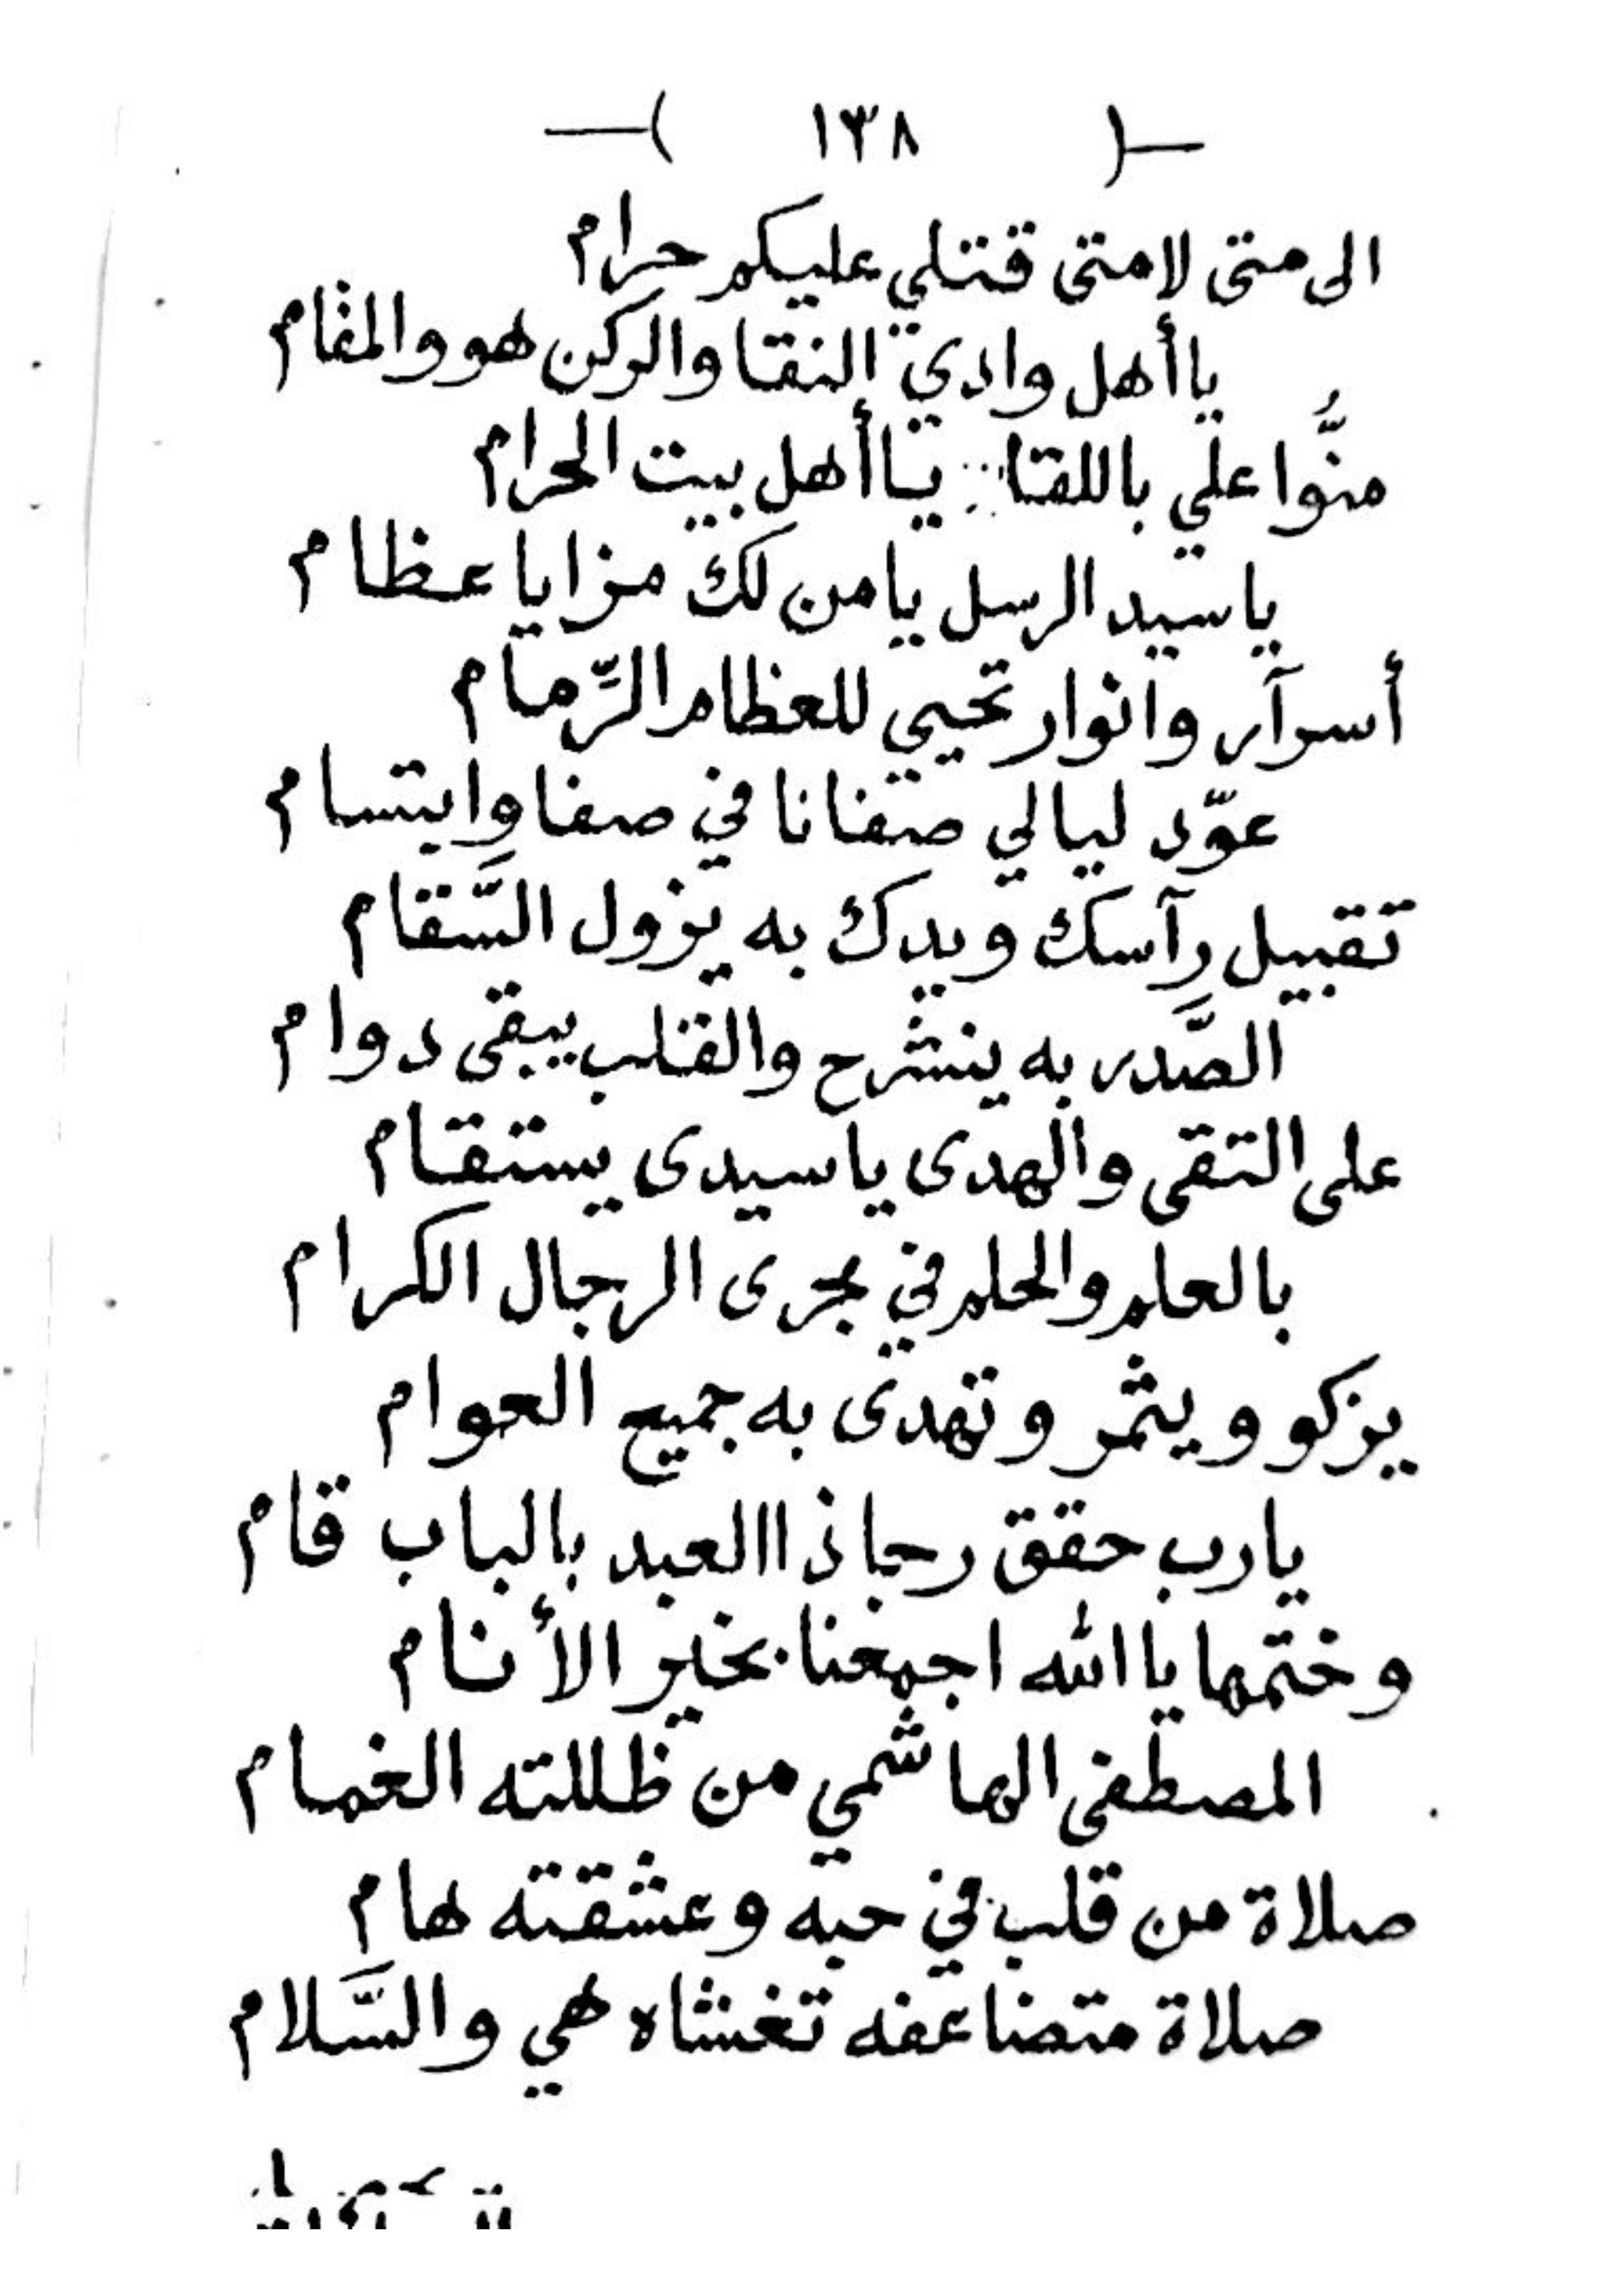 —( ١٣٨ )—
الى متى لا متى قتلي عليكم حرام
يا أهل وادي النقا والركن هو والمقام
منُّوا علي باللقا يا أهل بيت الحرام
يا سيد الرسل يا من لك مزايا عظام
أسرآر وانوار تحيي للعظام الرِّمام
عوّد ليالي صفانا في صفا وابتسام
تقبيل رآسك ويدك به يزول السَّقام
الصَّدر به ينشرح والقلب يبقى دوام
على التقى والهدى يا سيدى يستقام
بالعلم والحلم في مجرى الرجال الكرام
يزكو ويثمر وتهدى به جميع العوام
يارب حقق رجا ذا العبد بالباب قام
وختمها يا الله اجمعنا بخير الأنام
المصطفى الهاشمي من ظللته الغمام
صلاة من قلب في حبه وعشقته هام
صلاة متضاعفه تغشاه هي والسَّلام